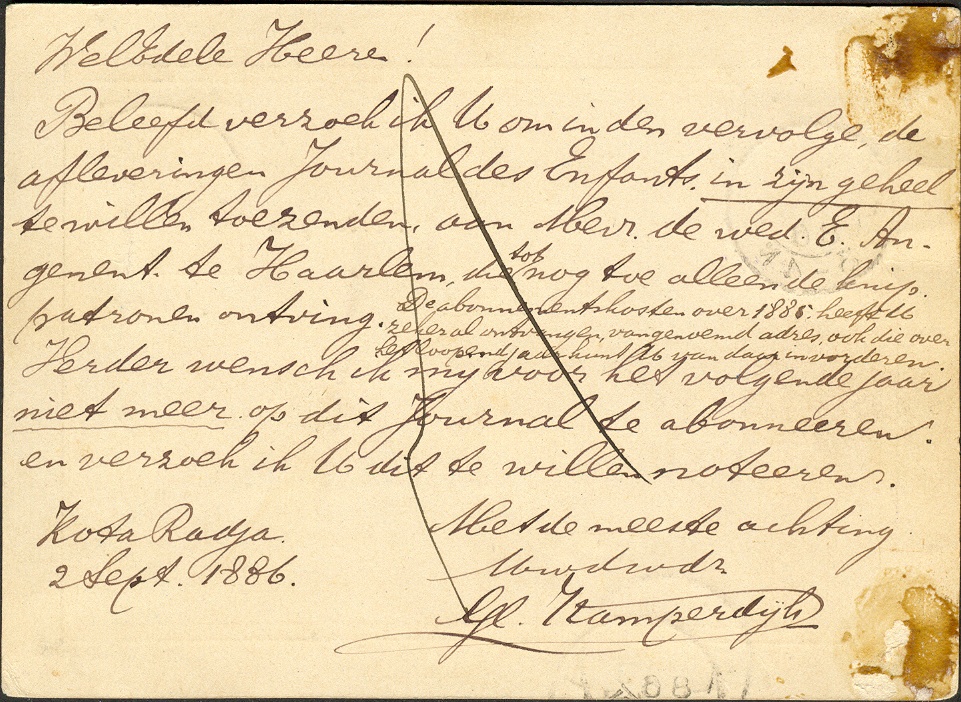 WelEdele Heere!
Beleefd verzoek ik U om in den vervolge, de
afleveringen Journal des Enfants, in zijn geheel
te willen toezenden, aan Mevr. de wed. E. An-
genent. te Haarlem, die tot nog toe alleen de knip-
patronen ontving. De abonnementskosten over 1885 heeft U
zeker al ontvangen, van genoemd adres, ook die over
het loopend jaar kunt U van daar invorderen.
Verder wensch ik mij voor het volgende jaar
niet meer op dit Journal te abonneeren.
en verzoek ik U dit te willen noteeren.
Kota Radja. Met de meeste achting
2 Sept. 1886.
Kamperdijk